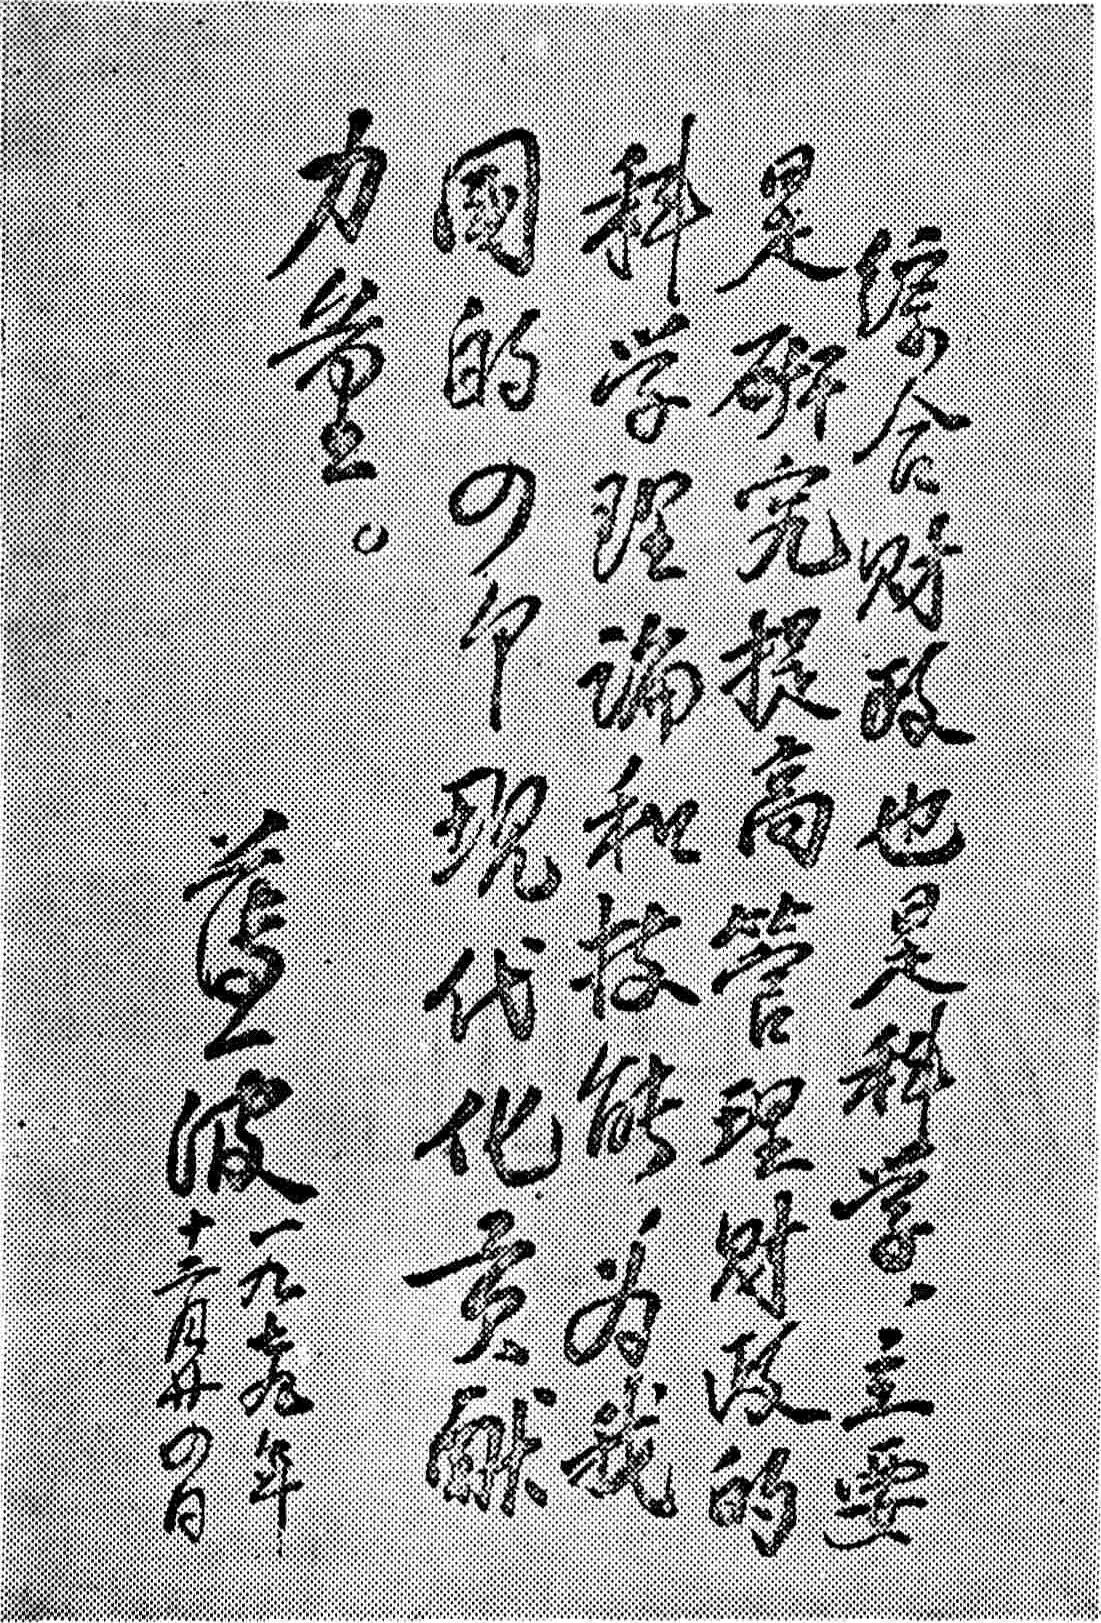 综合财政也是科学、主要
是研究提高管理财政的
科学理論和技能，为我
國的四个现代化贡献
力量。
薄一波
一九七九年
十二月廿四日